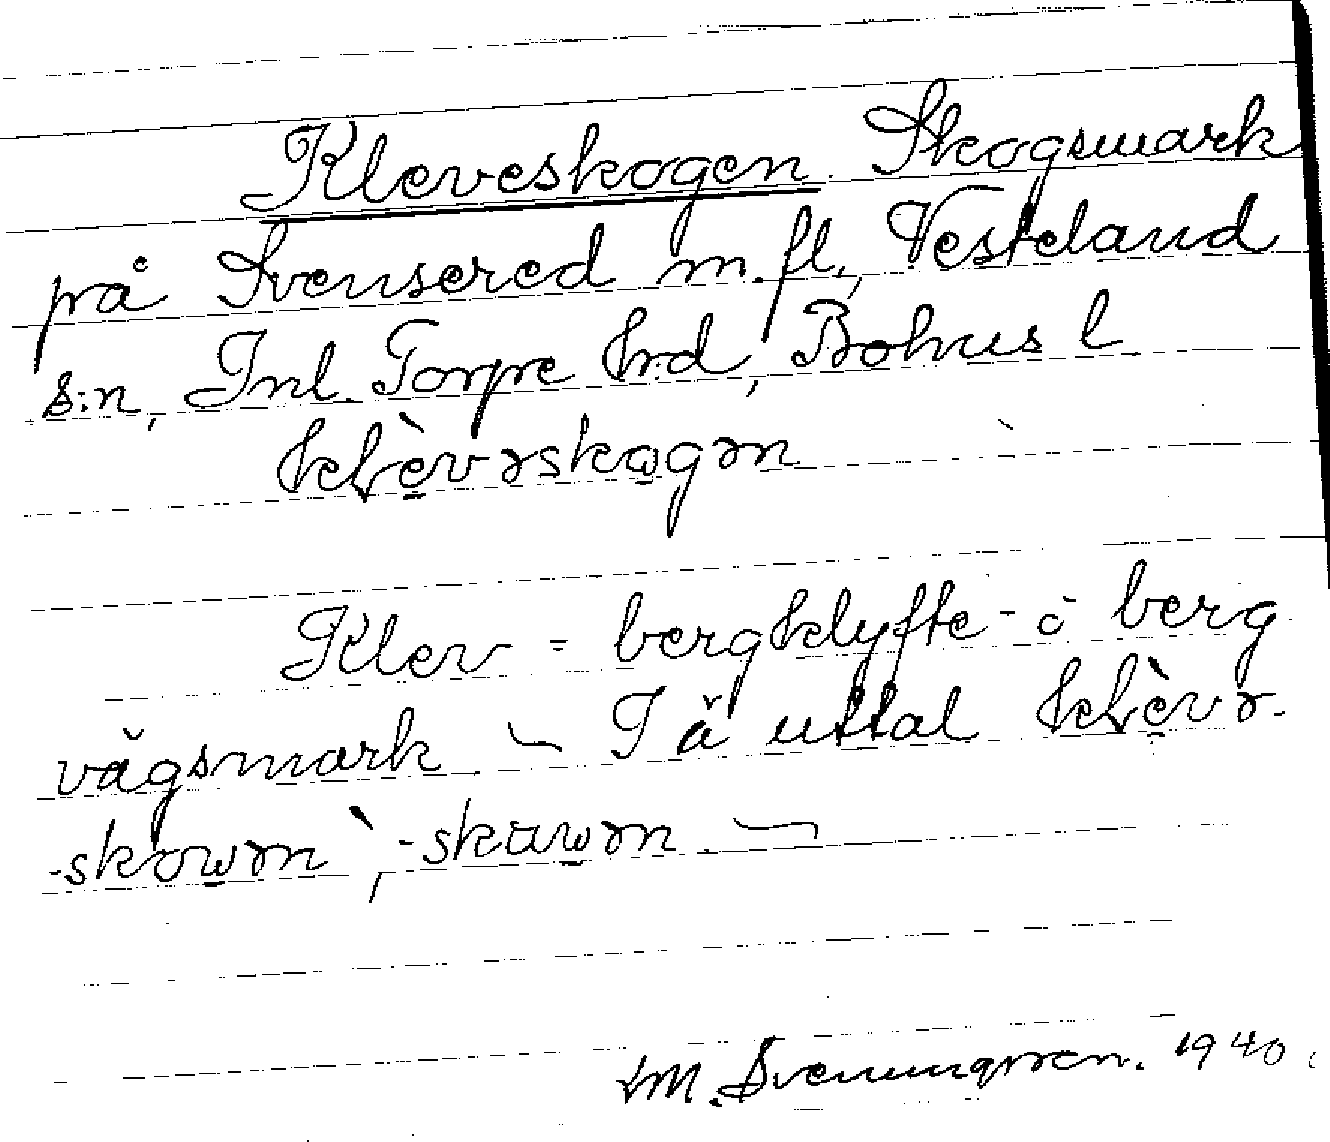 Kleveskogen Skogsmark
på Svensered m.fl., Vesteland
s:n, Inl. Torpe hrd, Bohus l
klèvəskogən
Klev - bergklyfte - o berg
vägsmark – I ä uttal klèvə-
-skowən, -skawən –
M. Svenungsson. 1940.